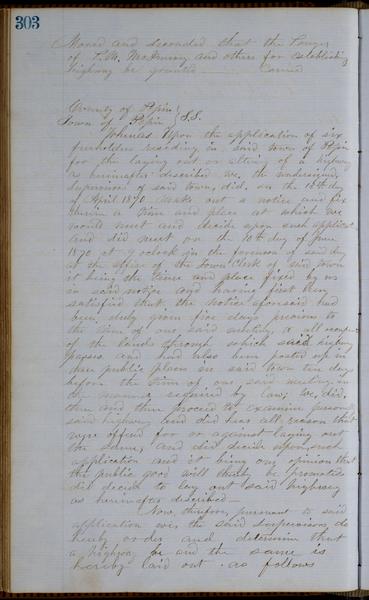 303
Moved and seconded that the Prayer
of and others for establishing
highway be granted Carried
County of Pepin }
Town of Pepin } S.S.
Whereas Upon the application of six
freeholders residing in said town of Pepin
for the laying out or altering of a highway
as hereinafter described we the undersigned
Supervisors of said town, did, on the day
of April 1870 make out a notice and fix
therein a time and place at which we
would meet and decide upon such applicat
and did meet on the 10th day of June
1870 at 9 oclock in the forenoon of said day
at the office of the Town Clerk of said town
it being the time and place fixed by us
in said notice and having first been
satisfied that the notice aforesaid had
been duly given five days previous to
the time of our said meeting, to all occupants
of the lands through which said highway
passes and had also been posted up in
three public places in said town ten days
before the time of our said meeting in
the manner required by law; we did,
then and there proceed to examine personally
said highway and did hear all reason that
were offered for or against laying out
the same, and did decide upon such
application and it being our opinion that
the public good will thereby be promoted
did decide to lay out said highway
as hereinafter described —
Now, therefore, pursuant to said
application we the said Supervisors do
hereby order and determine that
a highway be and the same is
hereby laid out as follows